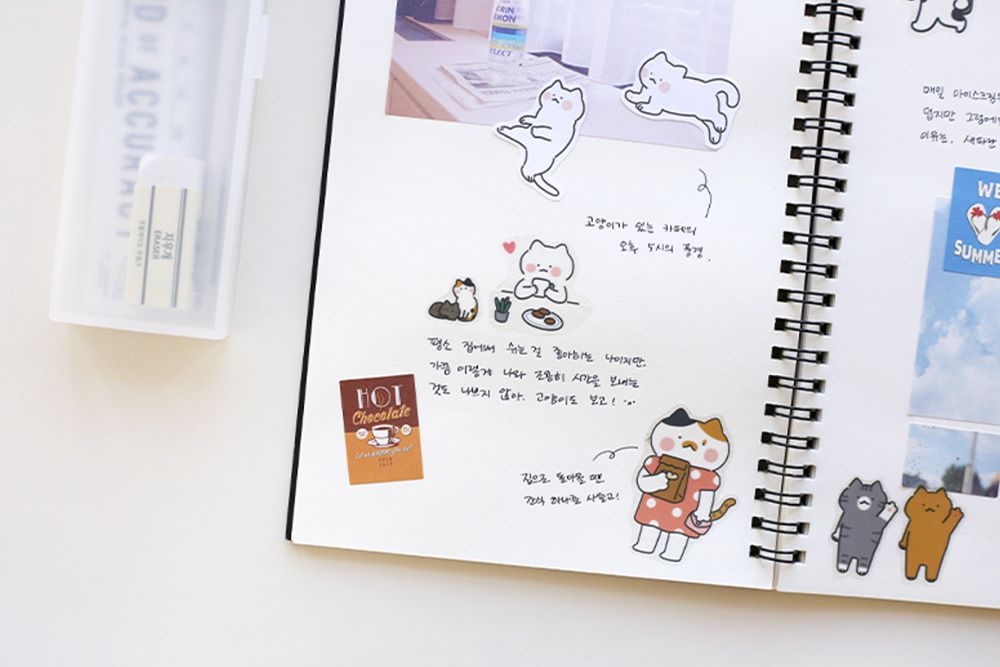 D OF ACCURAC
지우개
ERASER
ERIN
MON
LECT
고양이가 있는 카페의
오후 5시의 풍경.
평소 집에서 쉬는걸 좋아하는 나이지만,
가끔 이렇게 나와 조용히 시간을 보내는
것도 나쁘지 않아. 고양이도 보고!
HOT
Chocolate
집으로 돌아올 땐
간식 하나를 사들고!
매일 아이스크림
덥지만 그점에
이유는, 새파란
WE
SUMME